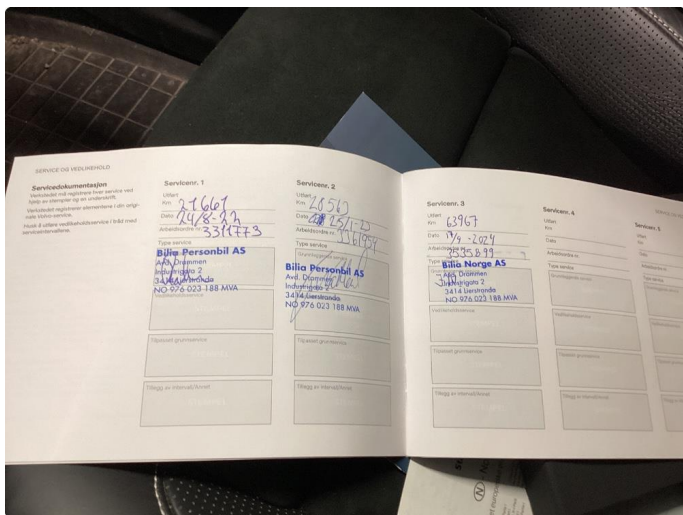 SERVICE OG VEDLIKEHOLD
Servicedokumentasjon
Verkstedet må registrere hver service ved
hjelp av stempler og en underskrift.
Verkstedet registrerer elementene i din origi-
nale Volvo-service.
Husk å utføre vedlikeholdsservice i tråd med
serviceintervallene.
Servicenr. 1
Utført
Km 21661
Dato 24/8-22
Arbeidsordre nr. 3311773
Type service
Bilia Personbil AS
Avd. Drammen
Industrigata 2
3414 Lierstranda
NO 976 023 188 MVA
Vedlikeholdsservice
Tilpasset grunnservice
Tillegg av intervall/annet
Servicenr. 2
Utført
Km
Dato 25/1-23
Arbeidsordre nr.
Type service
Bilia Personbil AS
Avd. Drammen
Industrigata 2
3414 Lierstranda
NO 976 023 188 MVA
Tilpasset grunnservice
Tillegg av intervall/annet
Servicenr. 3
Utført
Km 63967
Dato /9-2024
Arbeidsordre nr. 3535899
Type service
Bilia Norge AS
Avd. Drammen
Industrigata 2
3414 Lierstranda
NO 976 023 188 MVA
Vedlikeholdsservice
Tilpasset grunnservice
Tillegg av intervall/annet
Servicenr. 4
Utført
Km
Dato
Arbeidsordre nr.
Type service
Grunnleggende service
Vedlikeholdsservice
Tilpasset grunnservice
Tillegg av intervall/annet
Servicenr. 5
Utført
Km
Dato
Arbeidsordre nr.
Type service